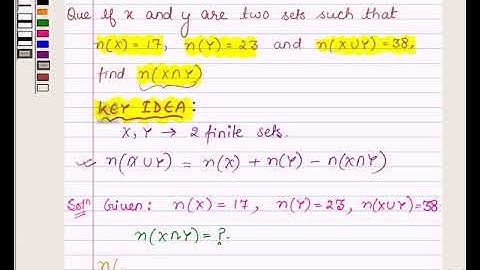 Que If x and y are two sets such that
n(X) = 17, n(Y) = 23 and n(X∪Y) = 38,
find n(X∩Y)
KEY IDEA:
X, Y → 2 finite sets.
n(X∪Y) = n(X) + n(Y) - n(X∩Y)
Solⁿ Given: n(X) = 17, n(Y) = 23, n(X∪Y) = 38
n(X∩Y) = ?.
n(